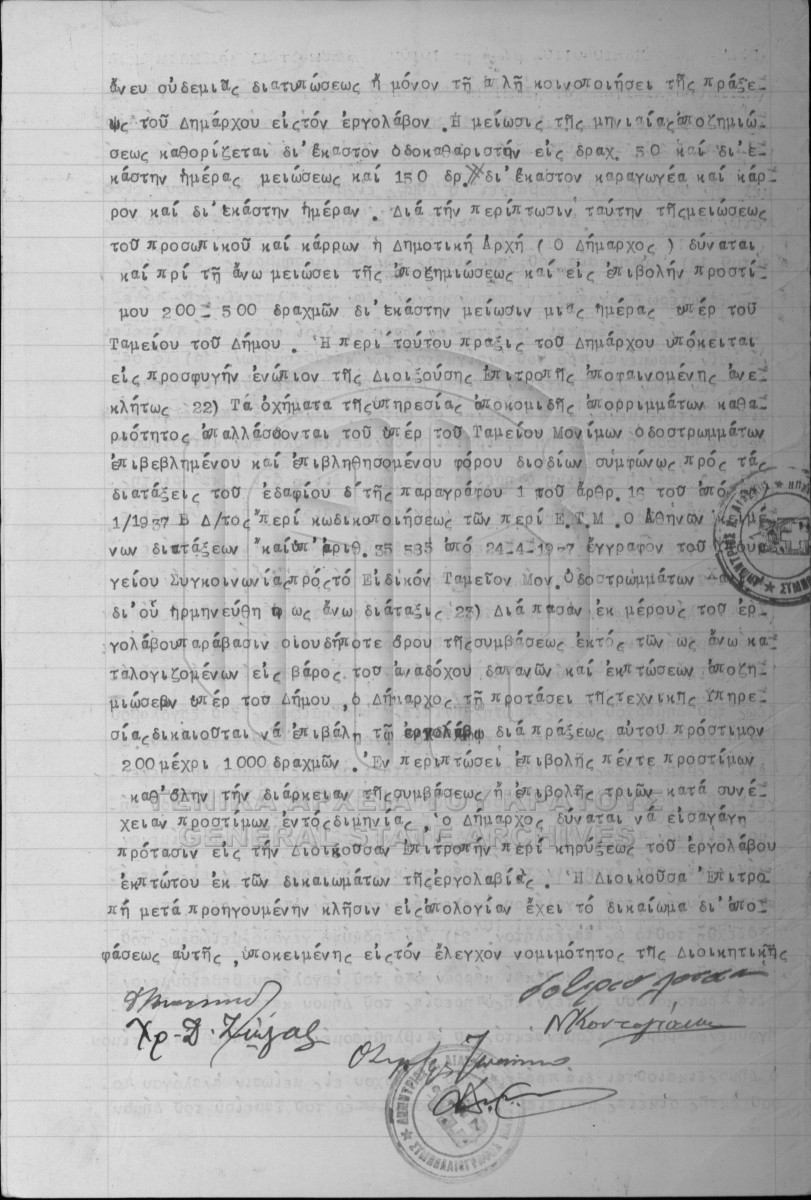 ἄνευ οὐδεμιᾶς διατυπώσεως ἤ μόνον τῇ ἁ λῇ κοινοποιήσει τῆς πράξε-
ως τοῦ Δημάρχου εἰςτόν ἐργολάβον . Ἡ μείωσις τῆς μηνιαίαςἀποζημιώ-
σεως καθορίζεται δι' ἕκαστον ὁδοκαθαριστήν εἰς δραχ. 50 καί δι' ἑ-
κάστην ἡμέρας μειώσεως καί 150 δρ. δι' ἕκαστον καραγωγέα καί κάρ-
ρον καί δι' ἑκάστην ἡμέραν . Διά τήν περίπτωσιν ταύτην τῆςμειώσεως
τοῦ προσωπικοῦ καί κάρρων ἡ Δημοτική Ἀρχή ( Ὁ Δήμαρχος ) δύναται
καί πρί τῇ ἄνω μειώσει τῆς ἀποζημιώσεως καί εἰς ἐπιβολήν προστί-
μου 200 - 500 δραχμῶν δι' ἑκάστην μείωσιν μιᾶς ἡμέρας ὑπέρ τοῦ
Ταμείου τοῦ Δήμου . Ἡ περί τούτου πρᾶξις τοῦ Δημάρχου ὑπόκειται
εἰς προσφυγήν ἐνώπιον τῆς Διοιξούσης Ἐπιτροπῆς ἀποφαινομένης ἀνε-
κλήτως 22) Τά ὀχήματα τῆςὑπηρεσίας ἀποκομιδῆς ἀπορριμμάτων καθα-
ριότητος ἀπαλλάσσονται τοῦ ὑπέρ τοῦ Ταμείου Μονίμων Ὁδοστρωμμάτων
ἐπιβεβλημένου καί ἐπιβληθησομένου φόρου διοδίων συμφώνως πρός τάς
διατάξεις τοῦ ἐδαφίου δ' τῆς παραγράφου 1 τοῦ ἄρθρ. 16 τοῦ ἀπό
1/1937 Β Δ/τος "περί κωδικοποιήσεως τῶν περί Ε.Τ.Μ.Ο Ἀθηνῶν κειμέ-
νων διατάξεων "καίὑπ' ἀριθ. 35 535 ἀπό 24-4-1937 ἔγγραφον τοῦ Ὑπουρ-
γείου Συγκοινωνίαςπρόςτό Εἰδικόν Ταμεῖον Μον. Ὁδοστρωμμάτων
δι' οὗ ἡρμηνεύθη ἡ ὡς ἄνω διάταξις 23) Διά πᾶσαν ἐκ μέρους τοῦ ἐρ-
γολάβουπαράβασιν οἱουδήποτε ὅρου τῆςσυμβάσεως ἐκτός τῶν ὡς ἄνω κα-
ταλογιζομένων εἰς βάρος τοῦ ἀναδόχου δαπανῶν καί ἐκπτώσεων ἀποζη-
μιώσεων ὑπέρ τοῦ Δήμου , ὁ Δήμαρχος τῇ προτάσει τῆςτεχνικῆς Ὑπηρε-
σίαςδικαιοῦται νά ἐπιβάλῃ τῷ ἐργολάβῳ διά πράξεως αὐτοῦ πρόστιμον
200 μέχρι 1000 δραχμῶν . Ἐν περιπτώσει ἐπιβολῆς πέντε προστίμων
καθ' ὅλην τήν διάρκειαν τῆςσυμβάσεως ἤ ἐπιβολῆς τριῶν κατά συνέ-
χειαν προστίμων ἐντόςδιμηνίας , ὁ Δήμαρχος δύναται νά εἰσαγάγῃ
πρότασιν εἰς τήν Διοικοῦσαν Ἐπιτροπήν περί κηρύξεως τοῦ ἐργολάβου
ἐκπτώτου ἐκ τῶν δικαιωμάτων τῆςἐργολαβίας . Ἡ Διοικοῦσα Ἐπιτρο-
πή μετά προηγουμένην κλῆσιν εἰςἀπολογίαν ἔχει τό δικαίωμα δι' ἀπο-
φάσεως αὐτῆς ,ὑποκειμένης εἰςτόν ἔλεγχον νομιμότητος τῆς Διοικητικῆς
Χρ. Δ.
ΓΕΝΙΚΑ ΑΡΧΕΙΑ ΤΟΥ ΚΡΑΤΟΥΣ
GENERAL STATE ARCHIVES